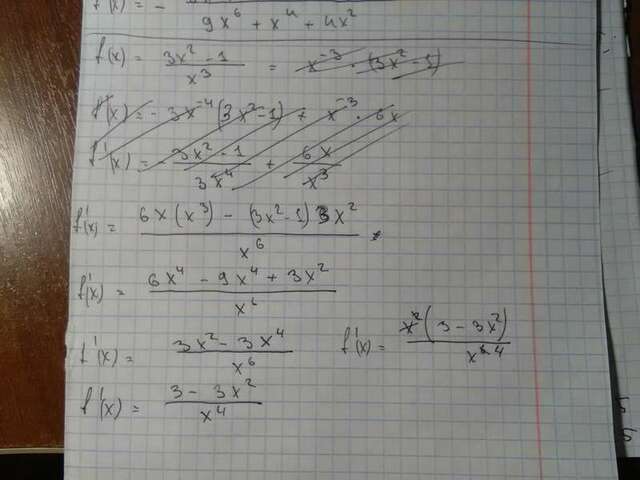 9x⁶ + x⁴ + 4x²
f(x) = (3x² - 1)/x³ = x⁻³ · (3x² - 1)
f'(x) = - 3x⁻⁴(3x² - 1) + x⁻³ · 6x
f'(x) = - (3x² - 1)/(3x⁴) + 6x/x³
f'(x) = (6x(x³) - (3x² - 1)3x²)/x⁶
f'(x) = (6x⁴ - 9x⁴ + 3x²)/x⁶
f'(x) = (3x² - 3x⁴)/x⁶
f'(x) = x²(3 - 3x²)/x⁴
f'(x) = (3 - 3x²)/x⁴